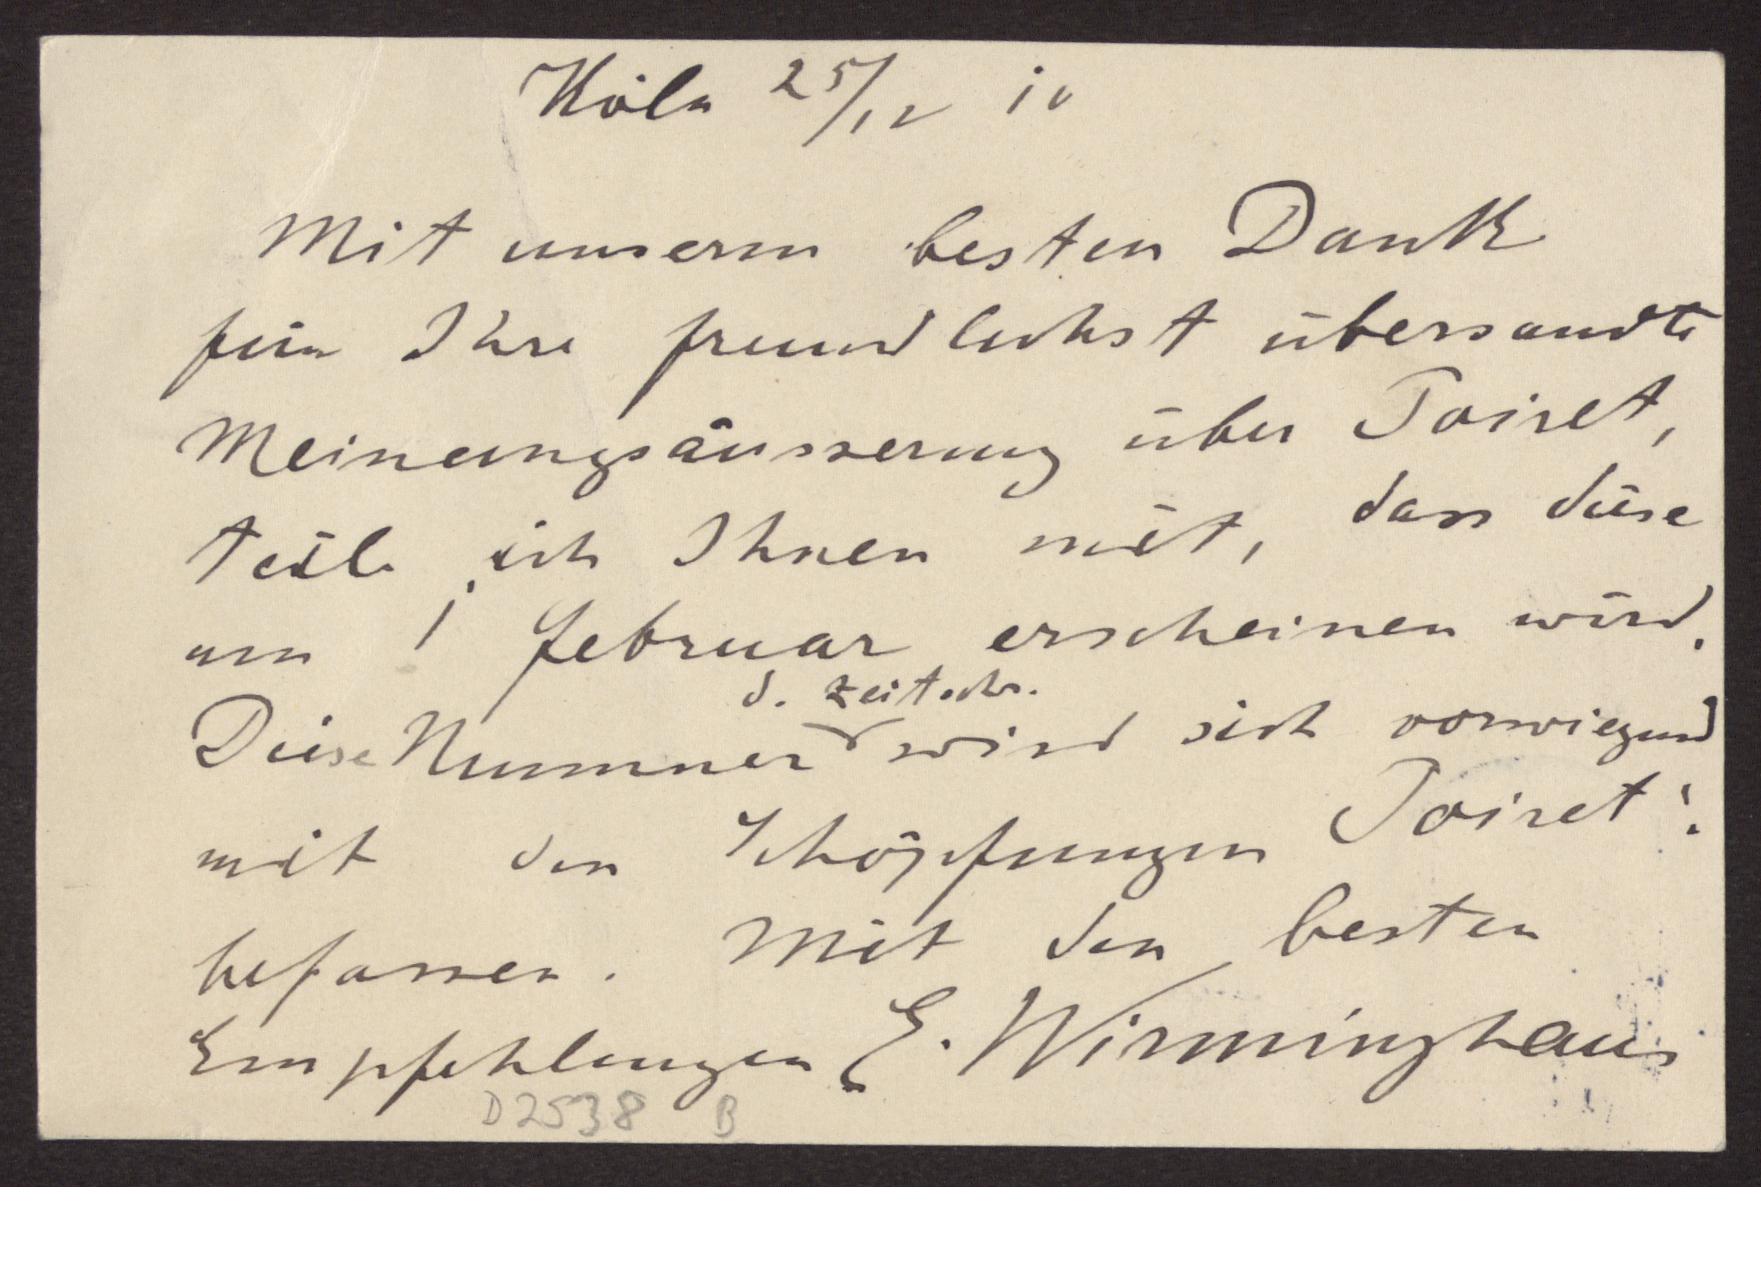 Köln 25/12 10
Mit unserm besten Dank
für Ihre freundlichst übersandte
Meinungsäusserung über Poiret,
teile ich Ihnen mit, dass diese
am 1 Februar erscheinen wird.
d. Zeitschr.
Diese Nummer wird sich vorwiegend
mit den Schöpfungen Poiret's
befassen. Mit den besten
Empfehlungen E. Wirminghaus
D2538 B